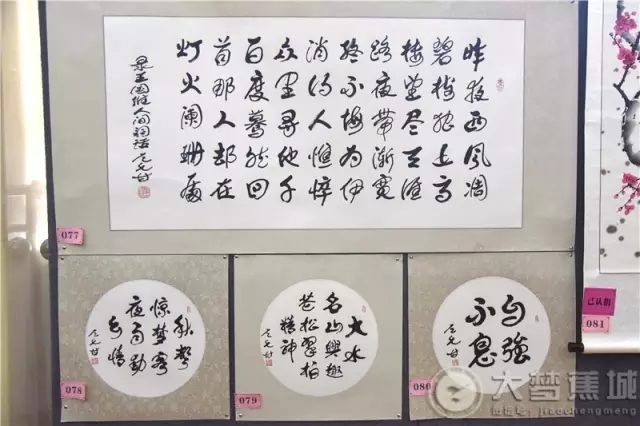 昨夜西风凋
碧树独上高
楼望尽天涯
路衣带渐宽
终不悔为伊
消得人憔悴
众里寻他千
百度蓦然回
首那人却在
灯火阑珊处
录王国维人间词话
077
秋声
惊梦客
夜雨动
乡情
078
大水
名山興趣
苍松翠柏
精神
079
自強
不息
080
已认捐
081
大梦蕉城
微信号:jiaochengmeng